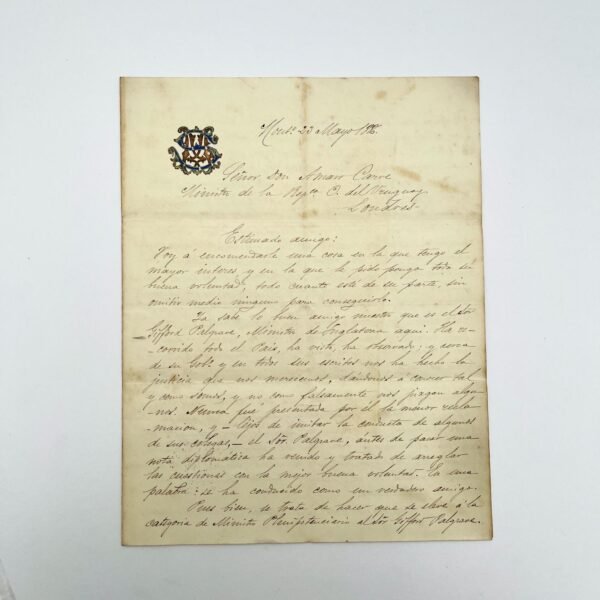 Montº 23 Mayo
Señor Don Amaro Carve
Ministro de la Repca O. del Uruguay
Londres
Estimado amigo:
Voy á encomendarle una cosa en la que tengo el
mayor interes y en la que le pido ponga toda su
buena voluntad, todo cuanto esté de su parte, sin
omitir medio ninguno para conseguirlo.
Ya sabe lo buen amigo nuestro que es el Sor
Gifford Palgrave, Ministro de Inglaterra aqui. Ha re-
-corrido todo el Pais, ha visto, ha observado; y acerca
de su Gobº y en todos sus escritos nos ha hecho la
justicia que nos merecemos, dándonos á conocer tal
y como somos, y no como falsamente nos juzgan algu-
-nos. Nunca fué presentada por él la menor recla-
-macion, y lejos de imitar la conducta de algunos
de sus colegas, el Sor. Palgrave, ántes de pasar una
nota diplomática ha venido y tratado de arreglar
las cuestiones con la mejor buena voluntad. En una
palabra: se ha conducido como un verdadero amigo.
Pues bien, se trata de hacer que se eleve á la
categoria de Ministro Plenipotenciario al Sor Gifford Palgrave.